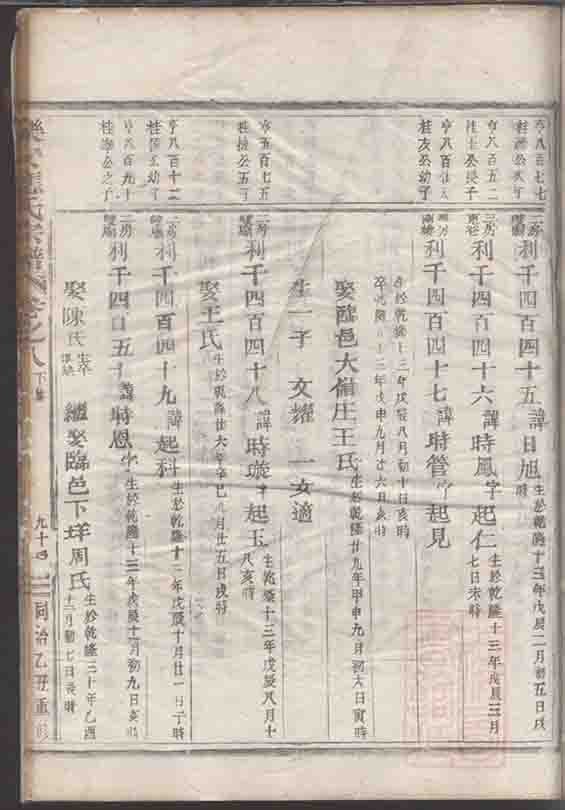 亨八百七七
桂 公次子
二房 利千四百四十五 諱日旭 生於乾隆十三年戊辰二月初五日戌時
亨八百五二
桂 公長子
利千四百四十六 諱時鳳 字起仁 生於乾隆十三年戊辰三月
七日未時
亨八百
桂友公幼子
利千四百四十七 諱時管 字起見
生於乾隆十三年戊辰八月初十日亥時
卒於乾隆五十三年戊申九月廿六日亥時
娶臨邑大嶺庄王氏 生於乾隆廿九年甲申九月初六日寅時
生一子 文燿 一女適
亨五百七五
桂 公五子
二房 利千四百四十八 諱時璇 字起玉 生乾隆十三年戊辰八月十
亥時
娶王氏 生於乾隆廿六年辛巳 月廿五日戌時
亨八百十二
桂 公幼子
二房 利千四百四十九 諱起科 生於乾隆十三年戊辰十月廿一日子時
亨八百九十
桂 公之子
二房 利千四百五十 諱時恩 字 生於乾隆十三年戊辰十一月初九日亥時
娶陳氏 繼娶臨邑下垟周氏 生於乾隆三十年乙酉
十二月初七日辰時
氏宗譜 卷之八 下 九十四 同治乙丑重修